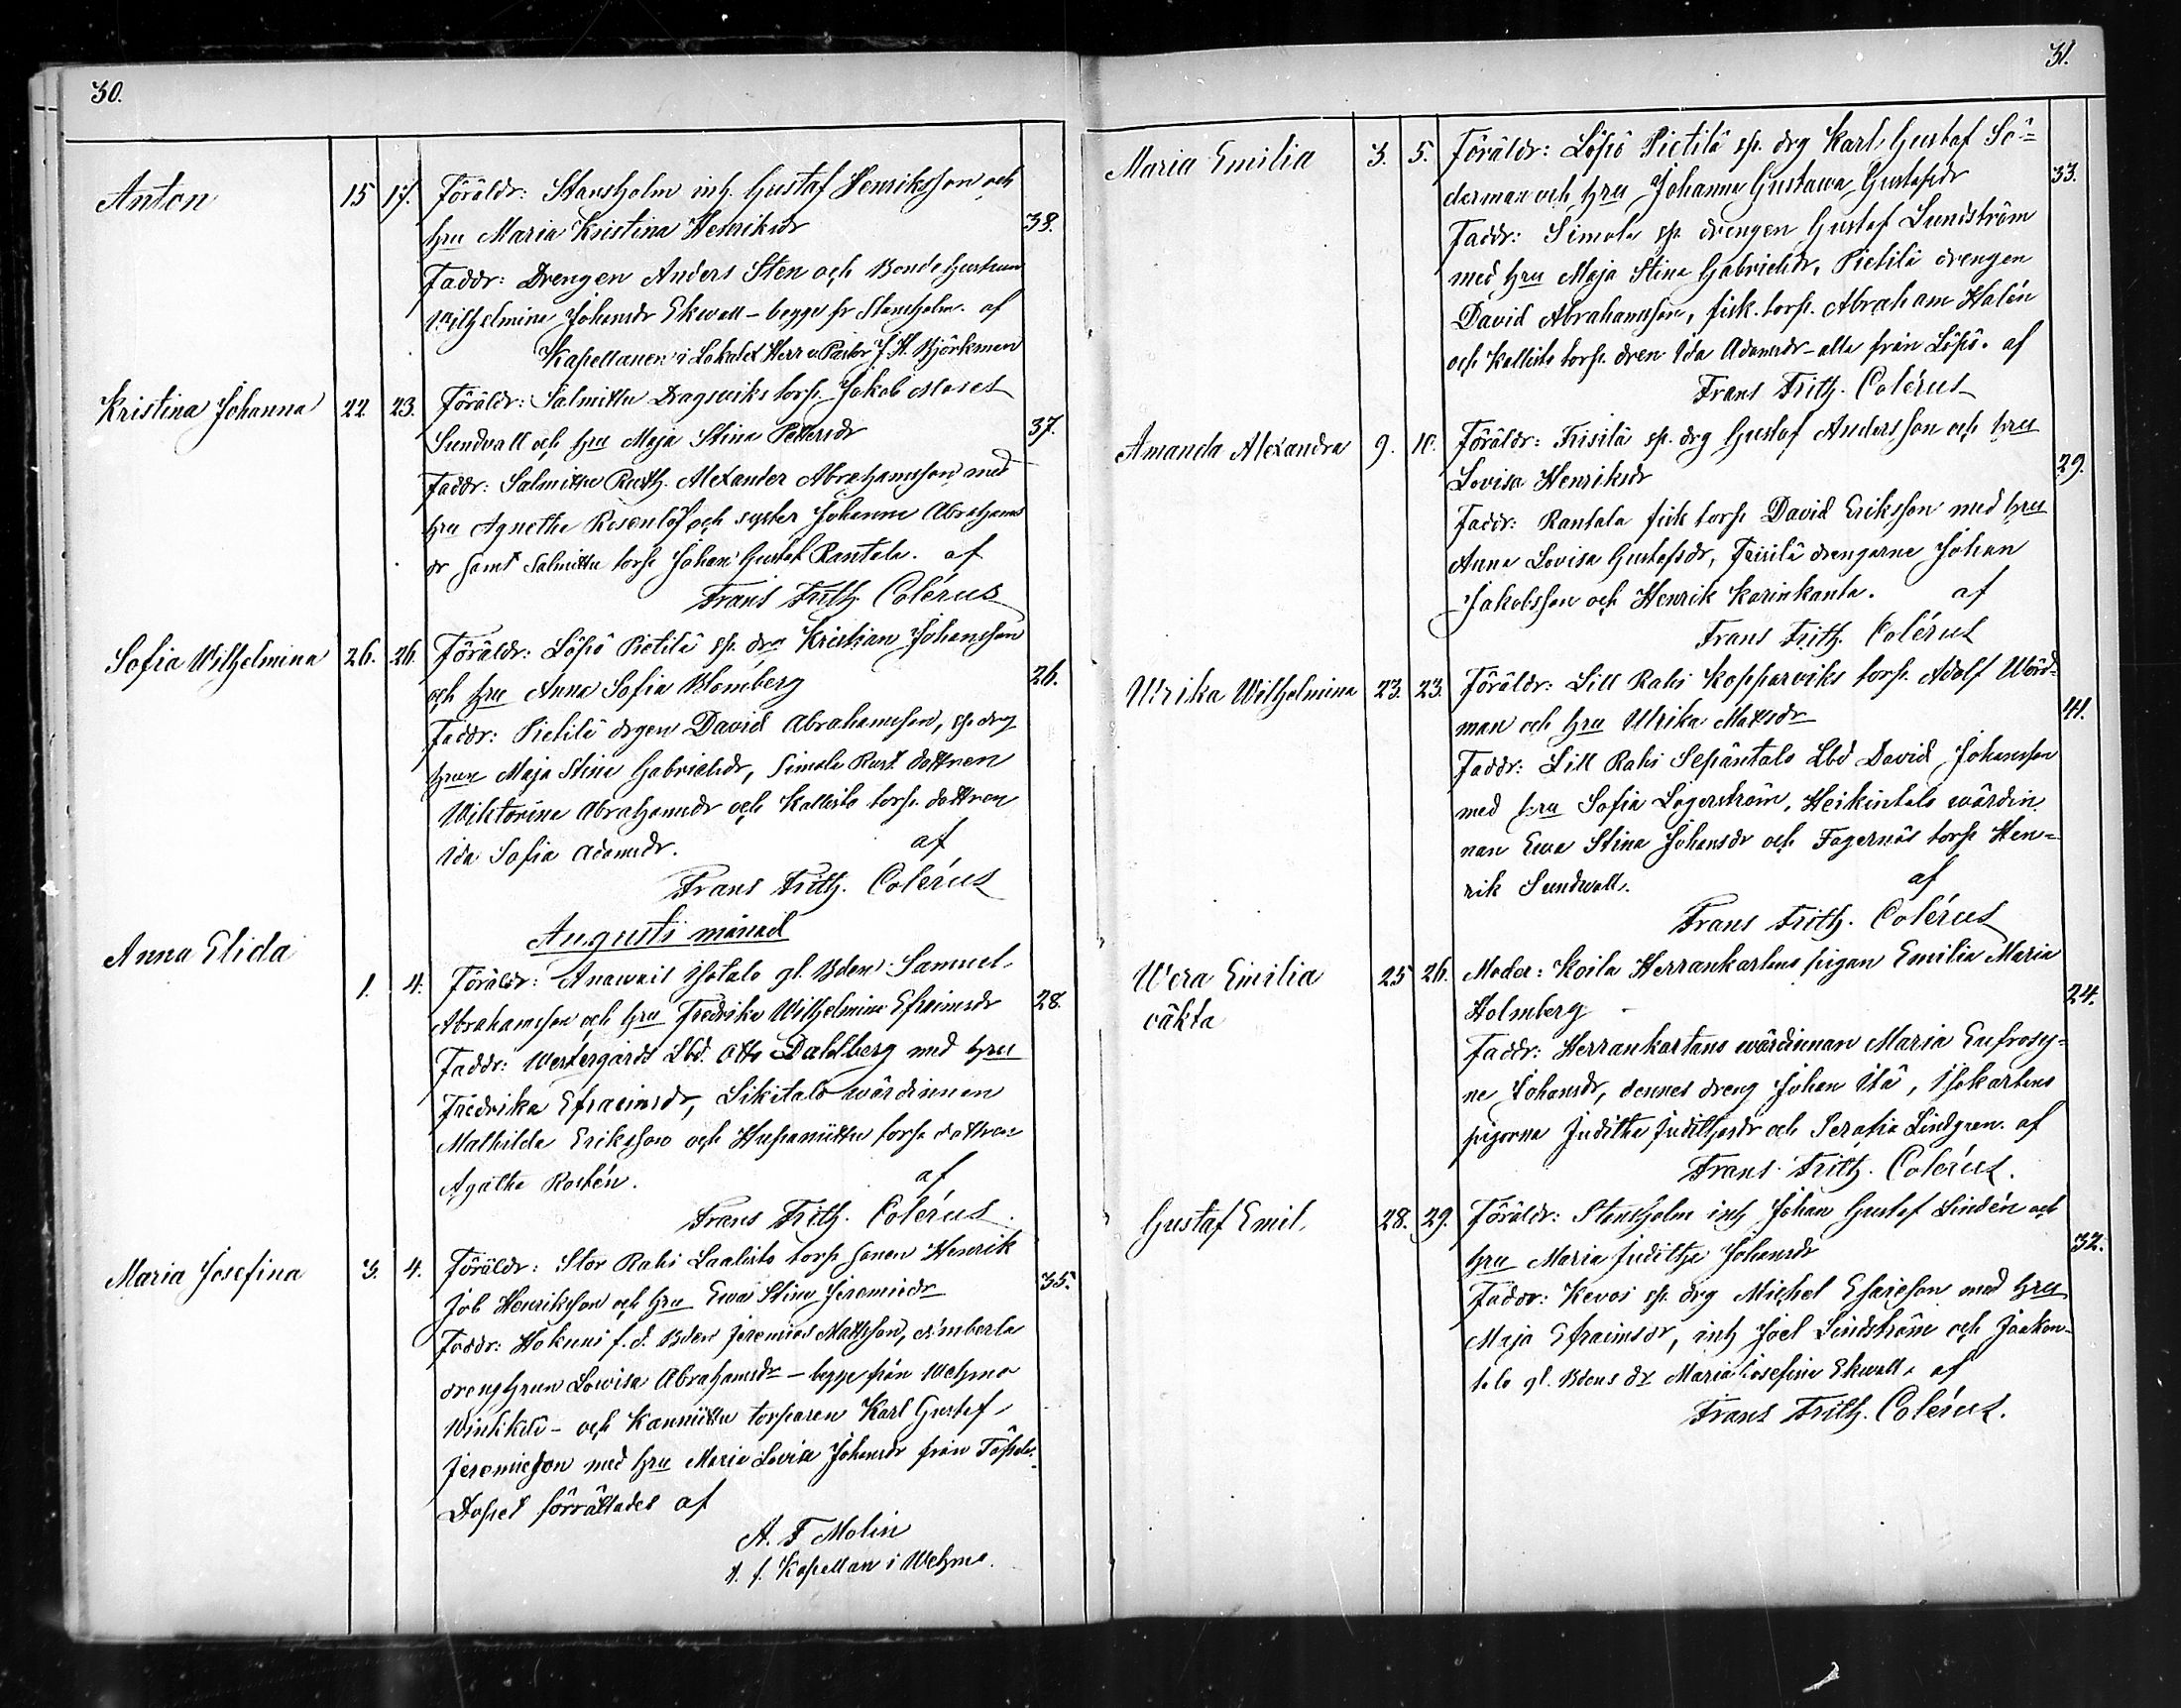 30.
Anton 15 17. Föräldr: Stansholm inh. Gustaf Henriksson och
hru Maria Kristina Henriksdr 38.
Faddr: Drengen Anders Sten och Bondehustrun
Wilhelmina Johansdr Ekwall – begge fr Stansholm. af
Kapellanen i Lokalax Herr v. Pastor J. H. Björkman
Kristina Johanna 22 23. Föräldr: Salmittu Dragsviks torp. Jakob Moses
Sundvall och hru Maja Stina Pettersdr 37.
Faddr: Salmittu Rusth. Alexander Abrahamsson med
hru Agnetha Rosenlöf och syster Johanna Abrahams
dr samt Salmittu torp. Johan Gustaf Rantala. af
Frans Frith. Colérus
Sofia Wilhelmina 26. 26. Föräldr: Löpö Pietilä sp. drg Kristian Johansson
och hru Anna Sofia Blomberg 26.
Faddr: Pietilä drgen David Abrahamsson, sp. drg
hrun Maja Stina Gabrielsdr, Simola Rust. dottren
Wiktorina Abrahamsdr och Kallisto torp. dottren
Ida Sofia Adamsdr. af
Frans Frith. Colérus
Augusti månad
Anna Elida 1. 4. Föräldr: Anavais Isotalo gl. Bden Samuel
Abrahamsson och hru Fredrika Wilhelmina Efraimsdr 28.
Faddr: Westergårds Lbd. Otto Dahlberg med hru
Fredrika Efraimsdr, Sikitalo wärdinnan
Mathilda Eriksson och Hepamiittu torp. dottren
Agatha Rostén. af
Frans Frith. Colérus.
Maria Josefina 3. 4. Föräldr: Stor Rahi Laalisto torp. sonen Henrik
Job Henriksson och hru Ewa Stina Jeremiedr 35.
Faddr: Hokuni f. d. Bden Jeremias Mattsson, Amberla
dreng hrun Lowisa Abrahamsdr – begge från Wehmo
Winkkilä – och Kanniittu torparen Karl Gustaf
Jeremiesson med hru Maria Lovisa Johansdr från Töfsala.
Dopet förrättades af
A. F Molin
t. f. Kapellan i Wehmo.
31.
Maria Emilia 3. 5. Föräldr: Löpö Pietilä sp. drg Karl Gustaf Sö-
derman och hru Johanna Gustawa Gustafsdr 33.
Faddr: Simola sp. drengen Gustaf Lundström
med hru Maja Stina Gabrielsdr, Pietilä drengen
David Abrahamsson, fisk. torp. Abraham Halén
och Kallisto torp. dren Ida Adamsdr – alla från Löpö. af
Frans Frith. Colérus
Amanda Alexandra 9. 10. Föräldr: Frisilä sp. drg Gustaf Andersson och hru
Lovisa Henriksdr 29.
Faddr: Rantala fisk torp. David Eriksson med hru
Anna Lovisa Gustafsdr, Frisilä drengarna Johan
Jakobsson och Henrik Karinkanta. af
Frans Frith. Colérus
Ulrika Wilhelmina 23. 23. Föräldr: Lill Rahi Kopparviks torp. Adolf Nord-
man och hru Ulrika Mattsdr 41.
Faddr: Lill Rahi Sepäntalo Lbd David Johansson
med hru Sofia Lagerström, Heikintalo wärdin
nan Ewa Stina Johansdr och Fagernäs torp Hen-
rik Sundwall. af
Frans Frith. Colérus
Wera Emilia 25 26. Moder: Koila Herrankartano pigan Emilia Maria
oäkta Holmberg 24.
Faddr: Herrankartano wärdinnan Maria Eufrosy-
ne Johansdr, dennes dreng Johan Itä, Isokartano
pigorna Juditha Judithasdr och Serafia Lindgren. af
Frans Frith. Colérus.
Gustaf Emil 28. 29. Föräldr: Stansholm inh Johan Gustaf Lindén och
hru Maria Juditha Johansdr 32.
Faddr: Kevoi sp. drg Michel Esaieson med hru
Maja Efraimsdr, inh Joel Lindström och Jaakon-
talo gl. Bdens dr Maria Josefina Ekwall. af
Frans Frith. Colérus.